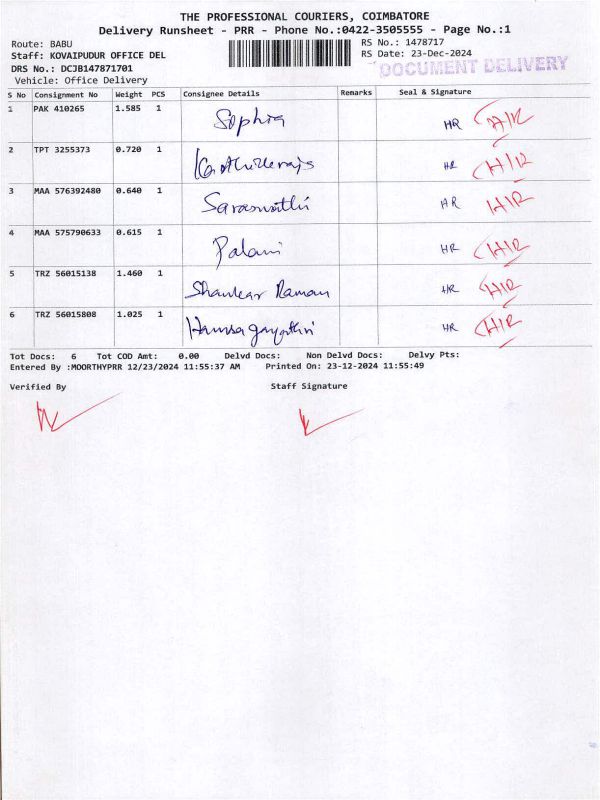 THE PROFESSIONAL COURIERS, COIMBATORE
Delivery Runsheet - PRR - Phone No.:0422-3505555 - Page No.:1
Route: BABU
RS No.: 1478717
Staff: KOVAIPUDUR OFFICE DEL
RS Date: 23-Dec-2024
DRS No.: DCJB147871701
DOCUMENT DELIVERY
Vehicle: Office Delivery
S No Consignment No Weight PCS Consignee Details Remarks Seal & Signature
1 PAK 410265 1.585 1 Sophia HR HR
2 TPT 3255373 0.720 1 HR HR
3 MAA 576392480 0.640 1 Saraswathi HR HR
4 MAA 575790633 0.615 1 Palani HR HR
5 TRZ 56015138 1.460 1 Shankar Raman HR HR
6 TRZ 56015808 1.025 1 Hamsa gayathri HR HR
Tot Docs: 6 Tot COD Amt: 0.00 Delvd Docs: Non Delvd Docs: Delvy Pts:
Entered By :MOORTHYPRR 12/23/2024 11:55:37 AM Printed On: 23-12-2024 11:55:49
Verified By Staff Signature